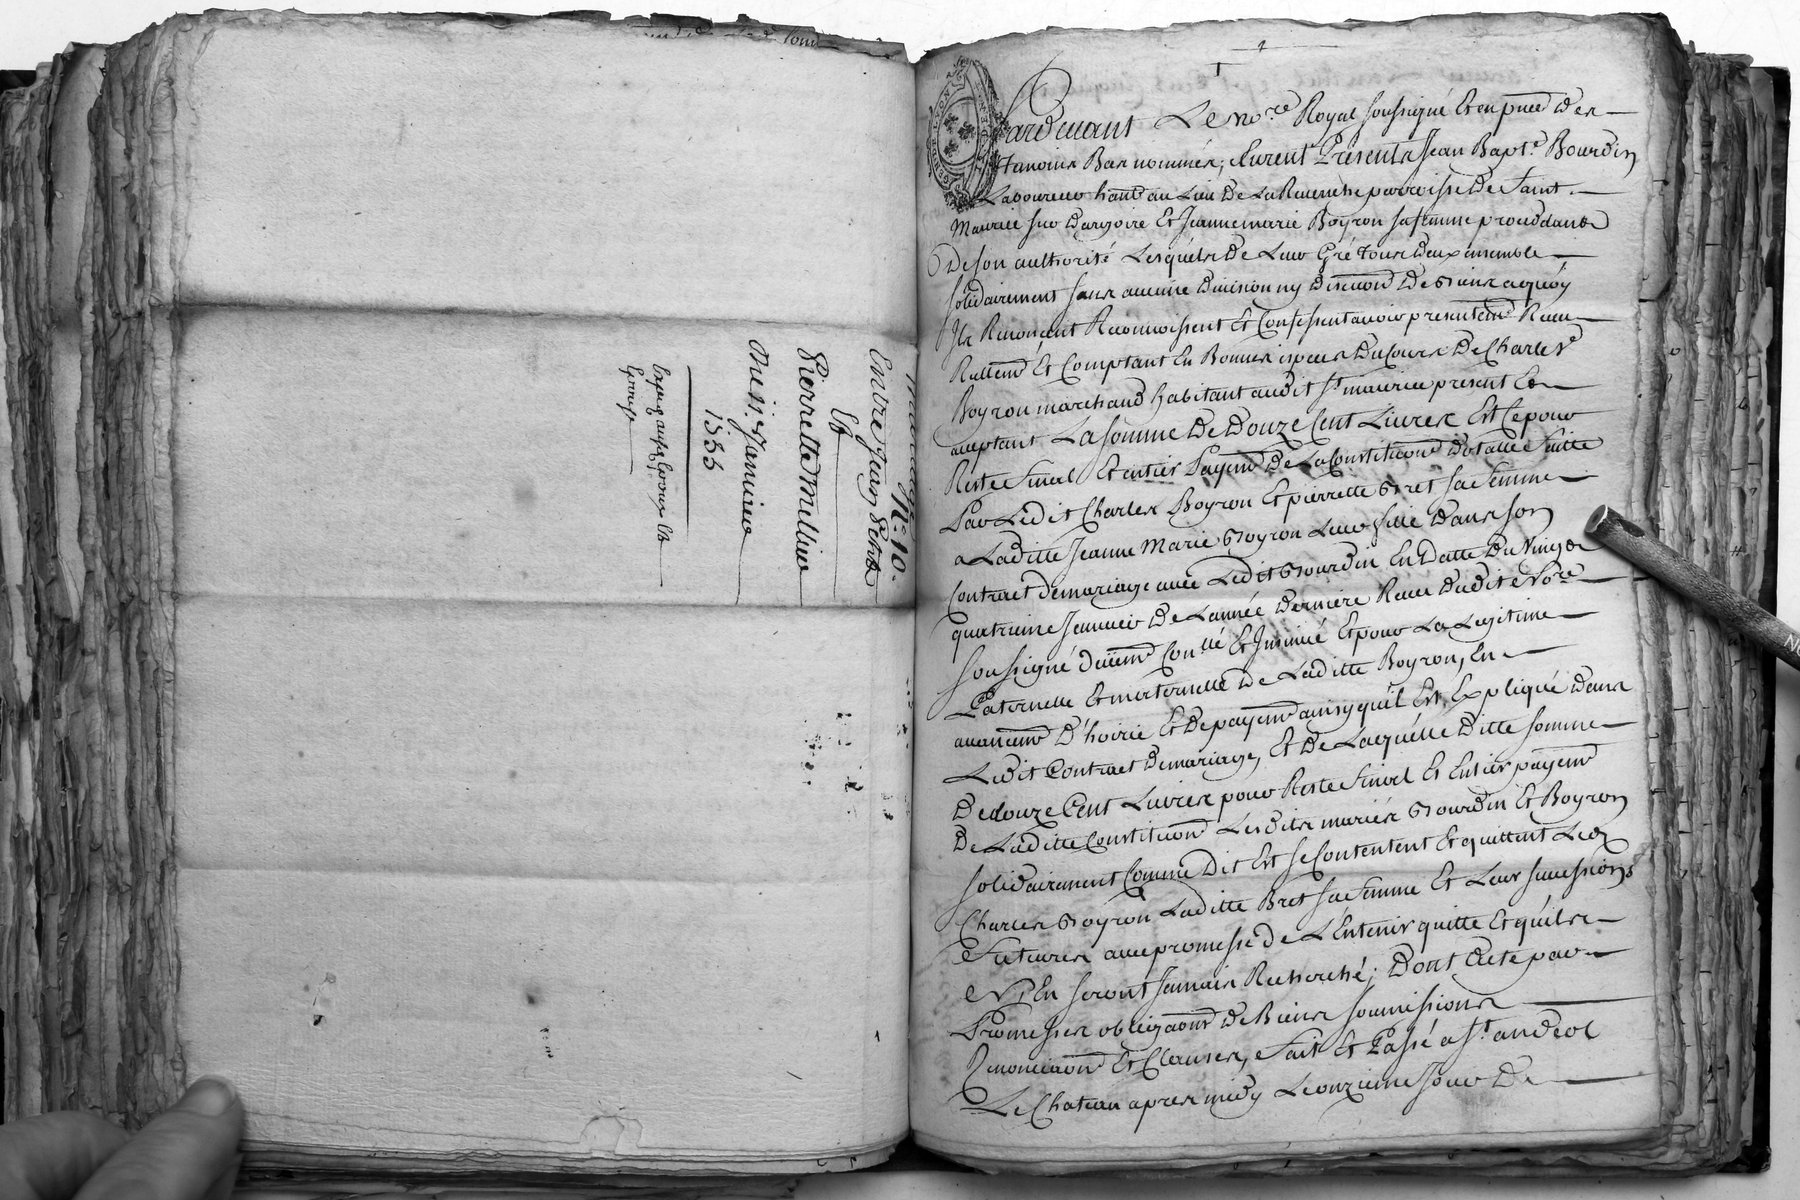 N.° 10.
Entre Jean Petit
Et
Pierrette Millier
Du 11e Janvier
1755
Expég aux Epoux le
Epouse
GENER LYON
Pardevant Le no.re Royal soussigné Et en pnce Des
Temoins Bas nommés, furent Presents Jean Bapt.e Bourdin
Laboureur hant au Lieu De La Ravenche parroisse De Saint
Maurice sur Dargoire Et Jeanne marie Boyron sa femme procedante
De son authorité Lesquels De Leur Gré Tous Deux ensemble
solidairement sans aucune Division ny Discution De Biens a quoy
Ils Renoncent Reconnoissent Et Confessent avoir presentem.t Receu
Reellem.t Et Comptant En Bonnes especes Du Cours De Charles
Boyron marchand habitant audit St maurice present Et
acceptant La somme De Douze Cent Livres Est Ce pour
Reste final Et entier Payem.t De La Constitution Dotalle faitte
Par Ledit Charles Boyron Et pierrette Bret sa femme
a Laditte Jeanne Marie Boyron Leur fille Dans son
Contract De mariage avec Ledit Bourdin En Datte Du Vingt
quatrieme Janvier De L'année Derniere Receu Dudit No.re
soussigné Deuëm.t Con.llé Et Insinué Et pour La Legitime
Paternelle Et maternelle De Laditte Boyron, En
avancem.t D'hoirie Et De payem.t ainsy qu'il Est Expliqué Dans
Ledit Contract De mariage, Et De Laquelle Ditte somme
De Douze Cent Livres pour Reste final Et Entier payem.t
De Laditte Constitution Lesdits mariés Bourdin Et Boyron
solidairement Comme Dit Est se Contentent Et quittent Led.
Charles Boyron Laditte Bret sa femme Et Leurs successions
Futures avec promesse De L'En tenir quitte Et qu'ils
N'En seront Jamais Recherché; Dont Acte par
Promesses obligaons De Biens soumissions
Renonciaons Et Clauses, Fait Et Passé a St andeol
Le Chateau apres midy Le onzieme Jour De